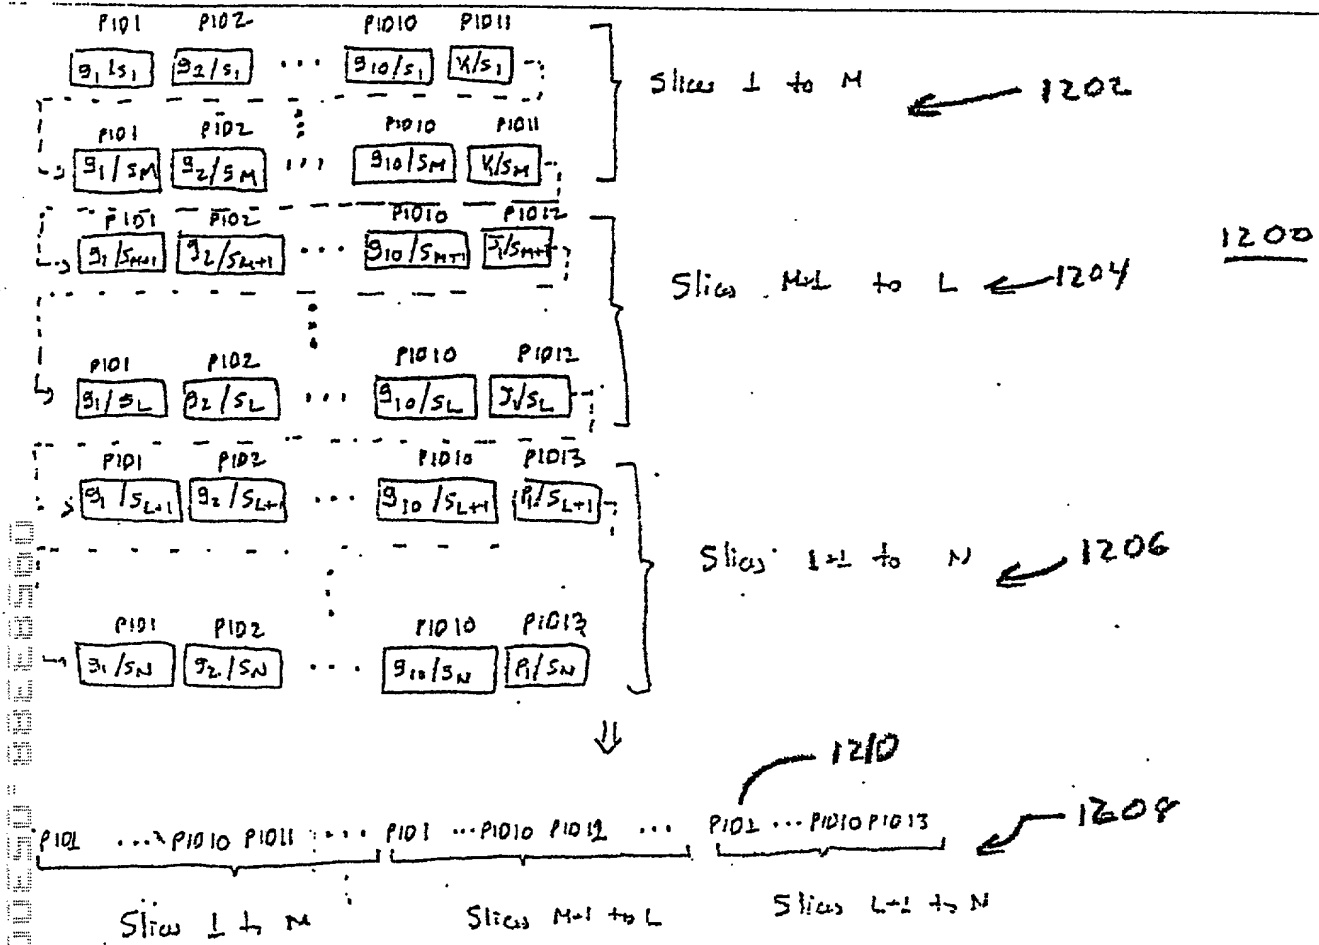 PID1 PID2 PID10 PID11
g1/s1 g2/s1 ... g10/s1 K1/s1
Slices 1 to M 1202
PID1 PID2 PID10 PID11
g1/sM g2/sM ... g10/sM K1/sM
PID1 PID2 PID10 PID12
g1/sM+1 g2/sM+1 ... g10/sM+1 J1/sM+1
1200
Slices M+1 to L 1204
PID1 PID2 PID10 PID12
g1/sL g2/sL ... g10/sL J1/sL
PID1 PID2 PID10 PID13
g1/sL+1 g2/sL+1 ... g10/sL+1 P1/sL+1
Slices L+1 to N 1206
PID1 PID2 PID10 PID13
g1/sN g2/sN ... g10/sN P1/sN
⇓
1210
PID1 ... PID10 PID11 ... PID1 ... PID10 PID12 ... PID1 ... PID10 PID13 1208
Slices 1 to M Slices M+1 to L Slices L+1 to N